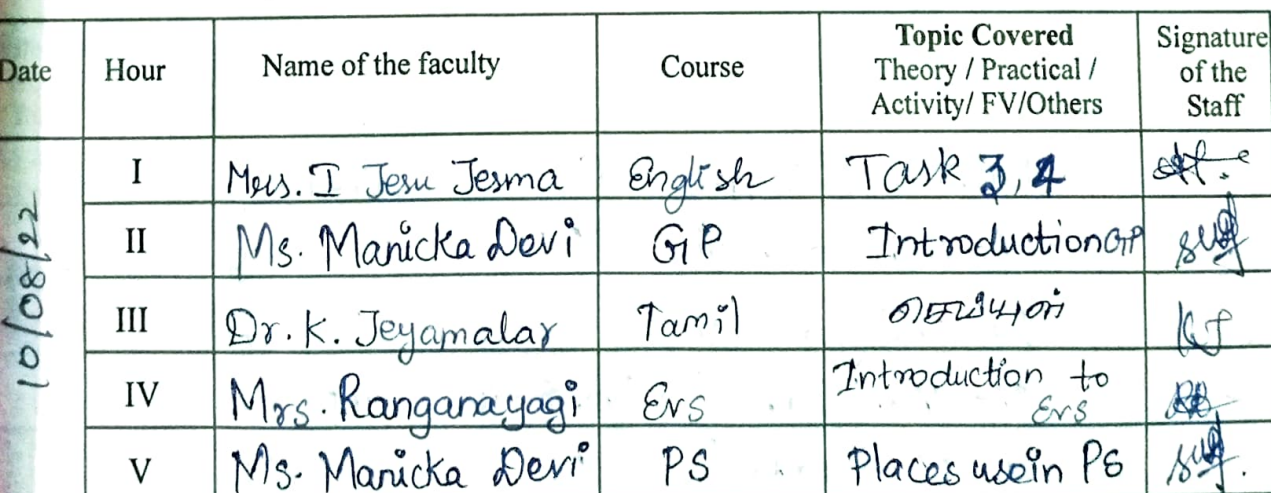 Date Hour Name of the faculty Course Topic Covered Theory / Practical / Activity/ FV/Others Signature of the Staff
10/08/22
I Mrs. I Jesu Jesma English Task 3, 4
II Ms. Manicka Devi GP Introduction GP
III Dr. K. Jeyamalar Tamil செய்யுள் KJ
IV Mrs. Ranganayagi Evs Introduction to Evs
V Ms. Manicka Devi PS Places use in PS